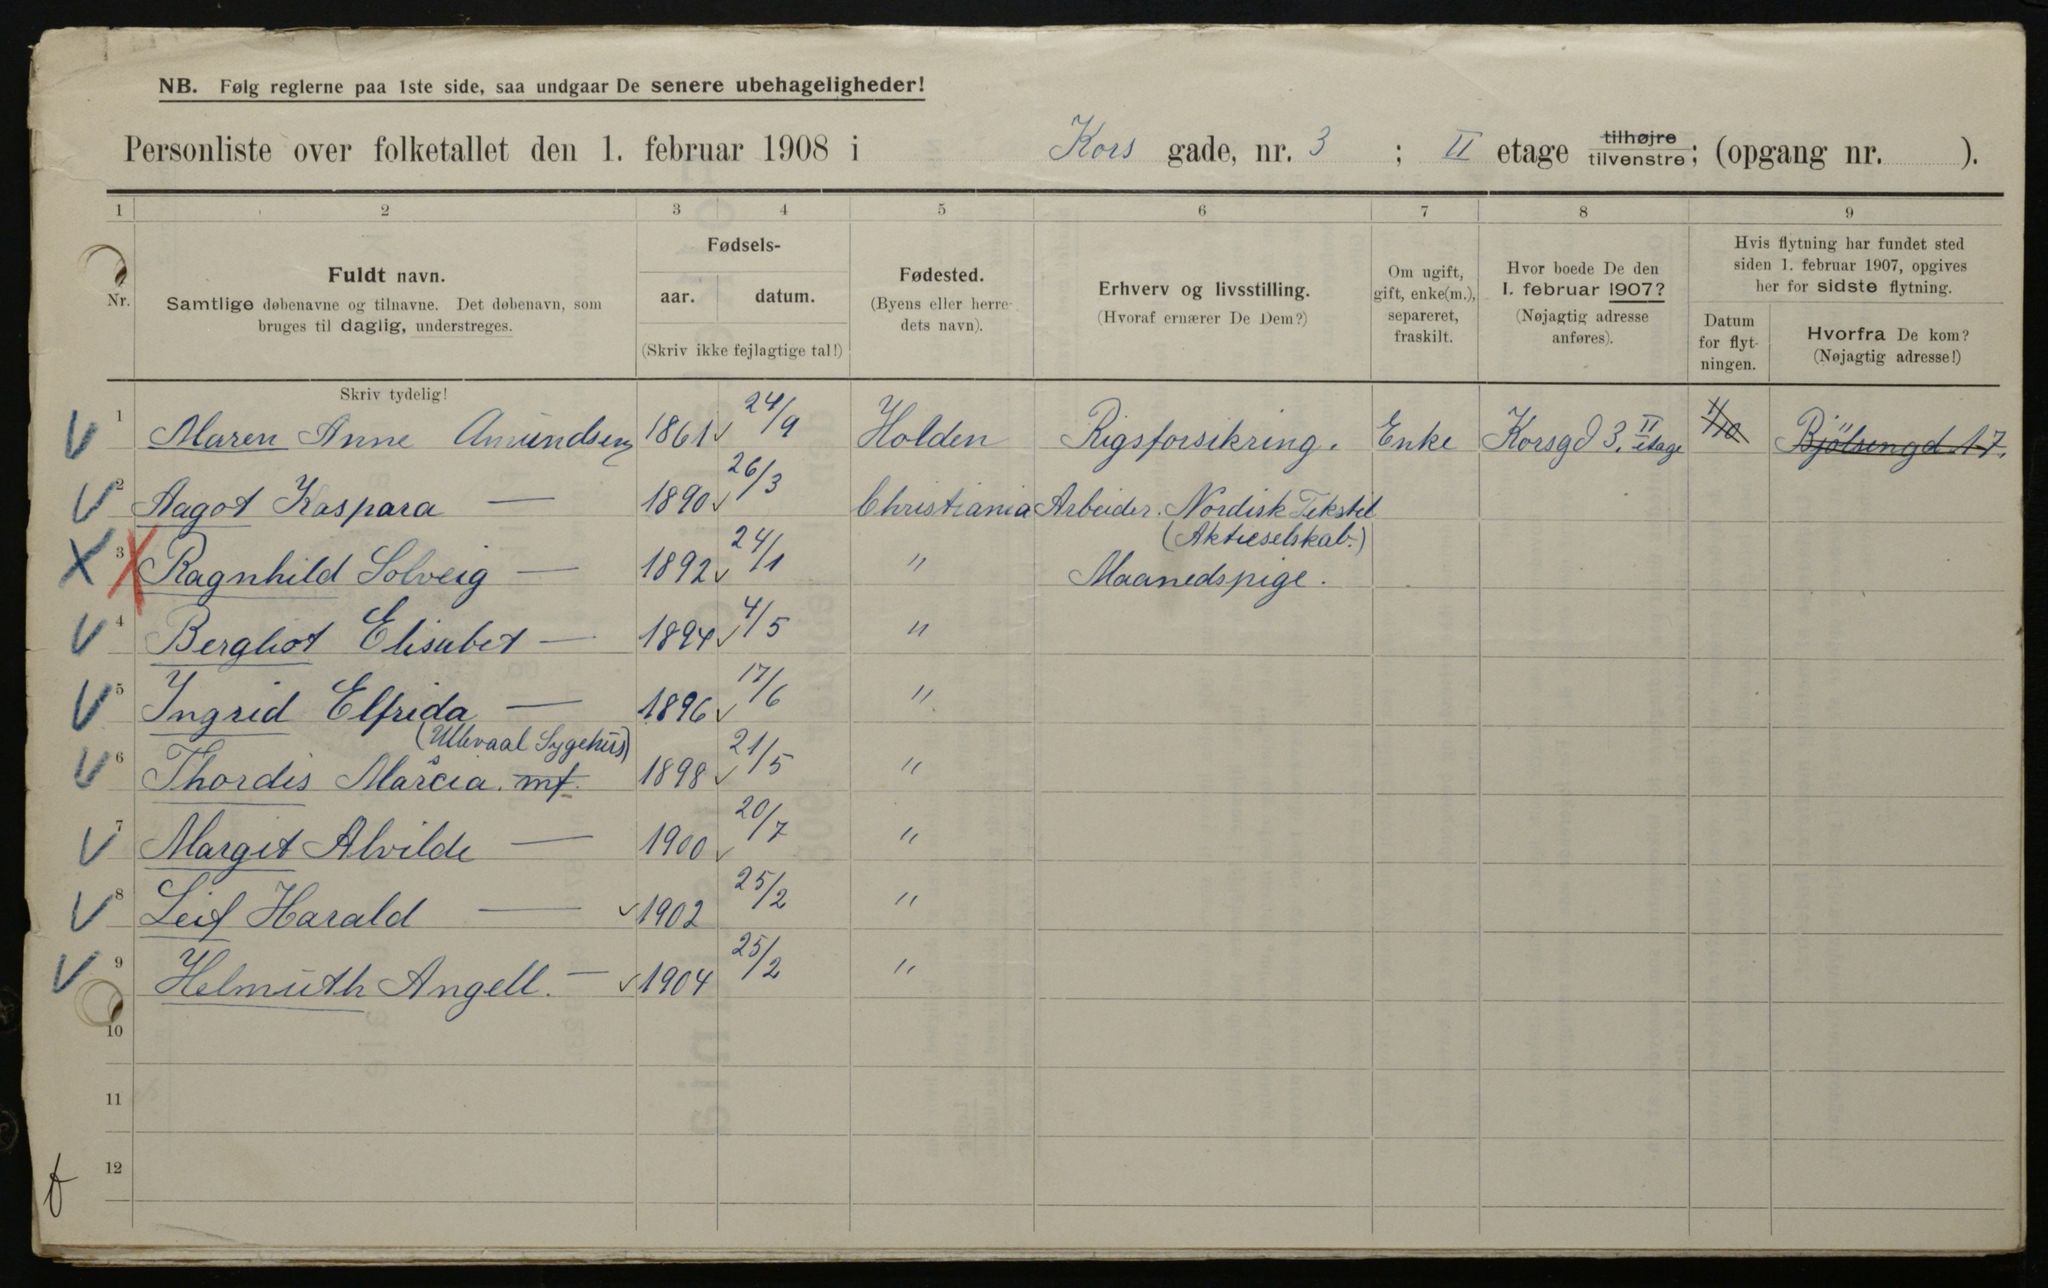 NB. Følg reglerne paa 1ste side, saa undgaar De senere ubehageligheder!
Personliste over folketallet den 1. februar 1908 i Kors gade, nr. 3 ; II etage tilhøjre tilvenstre; (opgang nr. ).
1 2 3 4 5 6 7 8 9
Nr.
Fuldt navn.
Samtlige døbenavne og tilnavne. Det døbenavn, som
bruges til daglig, understreges.
Skriv tydelig!
Fødsels-
aar. datum.
(Skriv ikke fejlagtige tal!)
Fødested.
(Byens eller herre-
dets navn).
Erhverv og livsstilling.
(Hvoraf ernærer De Dem?)
Om ugift,
gift, enke(m.),
separeret,
fraskilt.
Hvor boede De den
1. februar 1907?
(Nøjagtig adresse
anføres).
Hvis flytning har fundet sted
siden 1. februar 1907, opgives
her for sidste flytning.
Datum
for flyt-
ningen.
Hvorfra De kom?
(Nøjagtig adresse!)
1 Maren Anne Amundsen 1861 24/9 Holden Rigsforsikring. Enke Korsgd 3. II etage 1/10 Bjölsengd. 17.
2 Aagot Kaspara — 1890 26/3 Christiania Arbeider. Nordisk Tekstil
(Aktieselskab.)
3 Ragnhild Solveig — 1892 24/1 " Maanedspige.
4 Bergliot Elisabet — 1894 4/5 "
5 Ingrid Elfrida — 1896 17/6 "
(Ullevaal Sygehus)
6 Thordis Marcia. mf. 1898 21/5 "
7 Margit Alvilde — 1900 20/7 "
8 Leif Harald — 1902 25/2 "
9 Helmuth Angell. — 1904 25/2 "
10
11
12